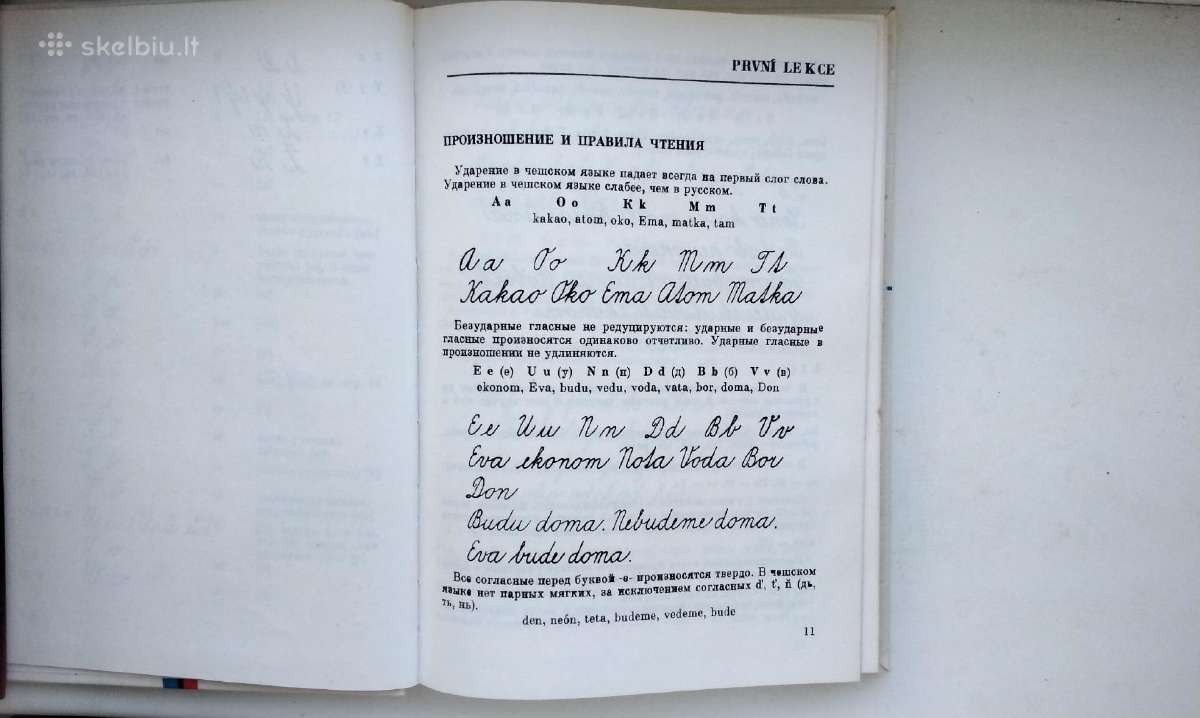 skelbiu.lt
PRVNÍ LEKCE
ПРОИЗНОШЕНИЕ И ПРАВИЛА ЧТЕНИЯ
Ударение в чешском языке падает всегда на первый слог слова.
Ударение в чешском языке слабее, чем в русском.
A a O o K k M m T t
kakao, atom, oko, Ema, matka, tam
Aa Oo Kk Mm Tt
Kakao Oko Ema Atom Matka
Безударные гласные не редуцируются: ударные и безударные
гласные произносятся одинаково отчетливо. Ударные гласные в
произношении не удлиняются.
E e (е) U u (у) N n (н) D d (д) B b (б) V v (в)
ekonom, Eva, budu, vedu, voda, vata, bor, doma, Don
Ee Uu Nn Dd Bb Vv
Eva ekonom Nota Voda Bor
Don
Budu doma. Nebudeme doma.
Eva bude doma.
Все согласные перед буквой -e- произносятся твердо. В чешском
языке нет парных мягких, за исключением согласных ď, ť, ň (дь,
ть, нь).
den, neón, teta, budeme, vedeme, bude
11